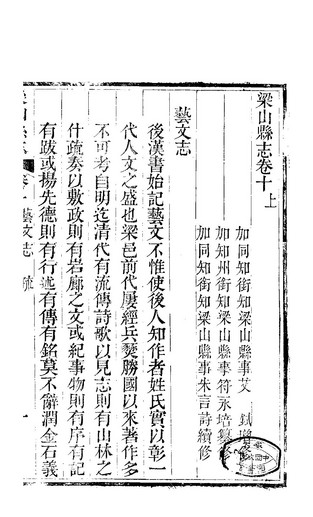 梁山縣志卷十上
加同知銜知梁山縣事艾
加知州銜知梁山縣事符永培纂修
加同知銜知梁山縣事朱言詩續修
藝文志
後漢書始記藝文不惟使後人知作者姓氏實以彰一
代人文之盛也梁邑前代屢經兵燹勝國以來著作多
不可考自明迄清代有流傳詩歌以見志則有山林之
什疏奏以敷政則有岩廊之文或紀事物則有序有記
有跋或揚先德則有行述有傳有銘莫不辭潤金石義
藝文志
一